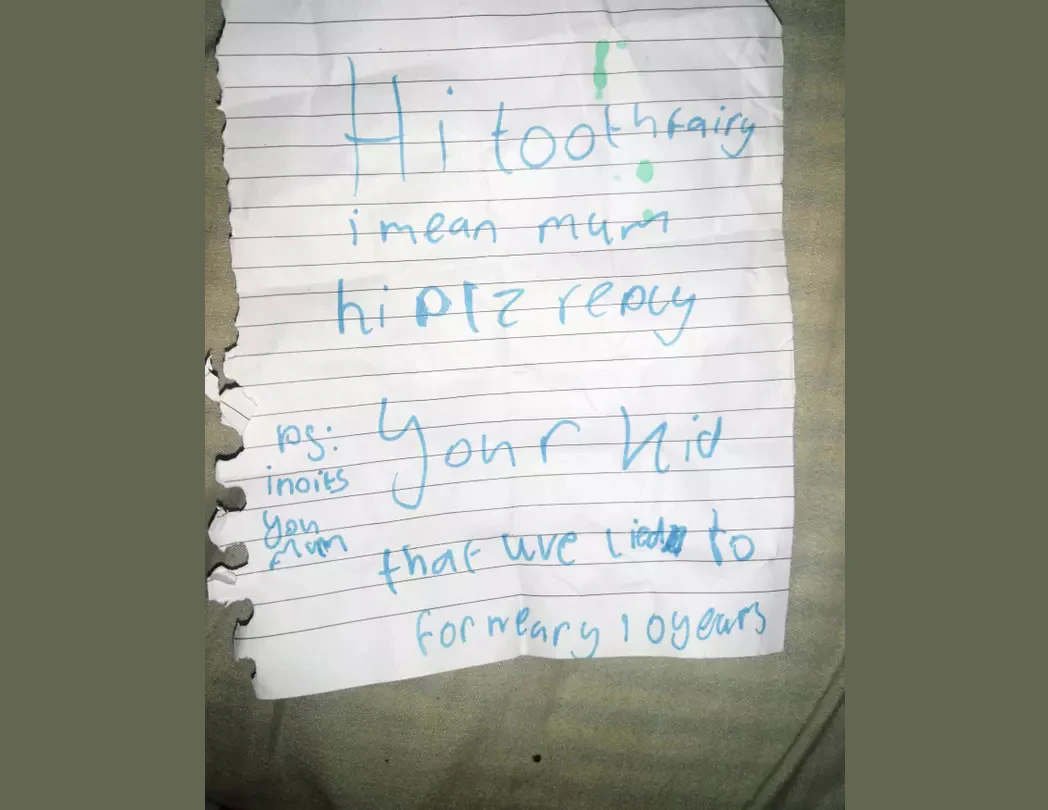 Hi toothfairy
i mean mum
hi plz reply
Your kid
that uve lied to
for neary 10years
ps:
inoits
you
mum